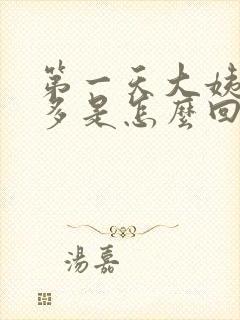 第一天大姨
多是怎麼回
湯嘉